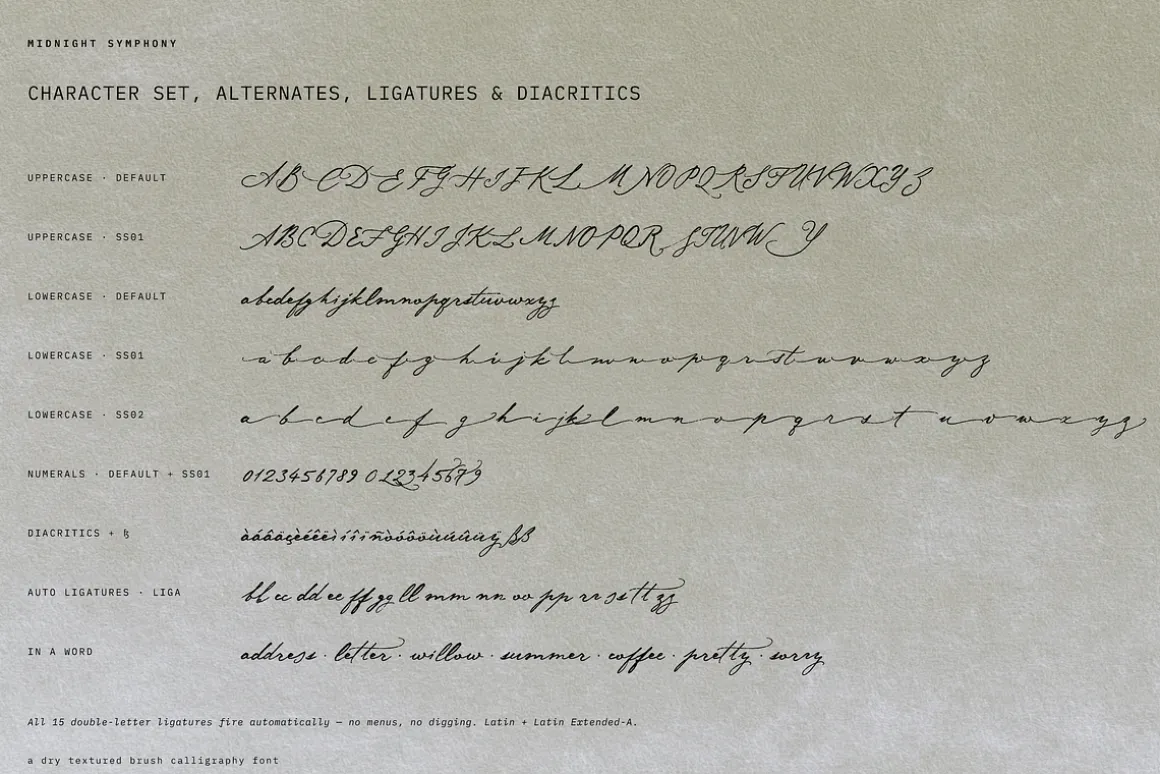 MIDNIGHT SYMPHONY
CHARACTER SET, ALTERNATES, LIGATURES & DIACRITICS
UPPERCASE · DEFAULT ABCDEFGHIJKLMNOPQRSTUVWXYZ
UPPERCASE · SS01 ABCDEFGHIJKLMNOPQRSTUVWY
LOWERCASE · DEFAULT abcdefghijklmnopqrstuvwxyz
LOWERCASE · SS01 abcdefghijklmnopqrstuvwxyz
LOWERCASE · SS02 abcdefghijklmnopqrstuvwxyz
NUMERALS · DEFAULT + SS01 0123456789 012345679
DIACRITICS + ß
AUTO LIGATURES · LIGA bb cc dd ee ff gg ll mm nn oo pp rr ss tt zz
IN A WORD address · letter · willow · summer · coffee · pretty · sorry
All 15 double-letter ligatures fire automatically — no menus, no digging. Latin + Latin Extended-A.
a dry textured brush calligraphy font